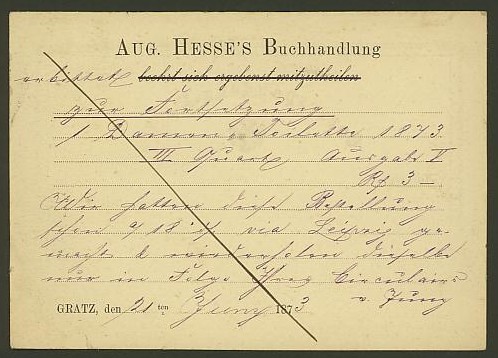 AUG. HESSE'S Buchhandlung
erbittet beehrt sich ergebenst mitzutheilen
zur Fortsetzung
1 Damen Toilette 1873.
III Quart Ausgabe V
Rf 3 –
Wir hatten diese Bestellung
schon 9/18 via Leipzig ge-
macht & wiederholen dieselbe
nur in Folge Ihres Circulairs
v. Juny
GRATZ, den 21ten Juny 1873